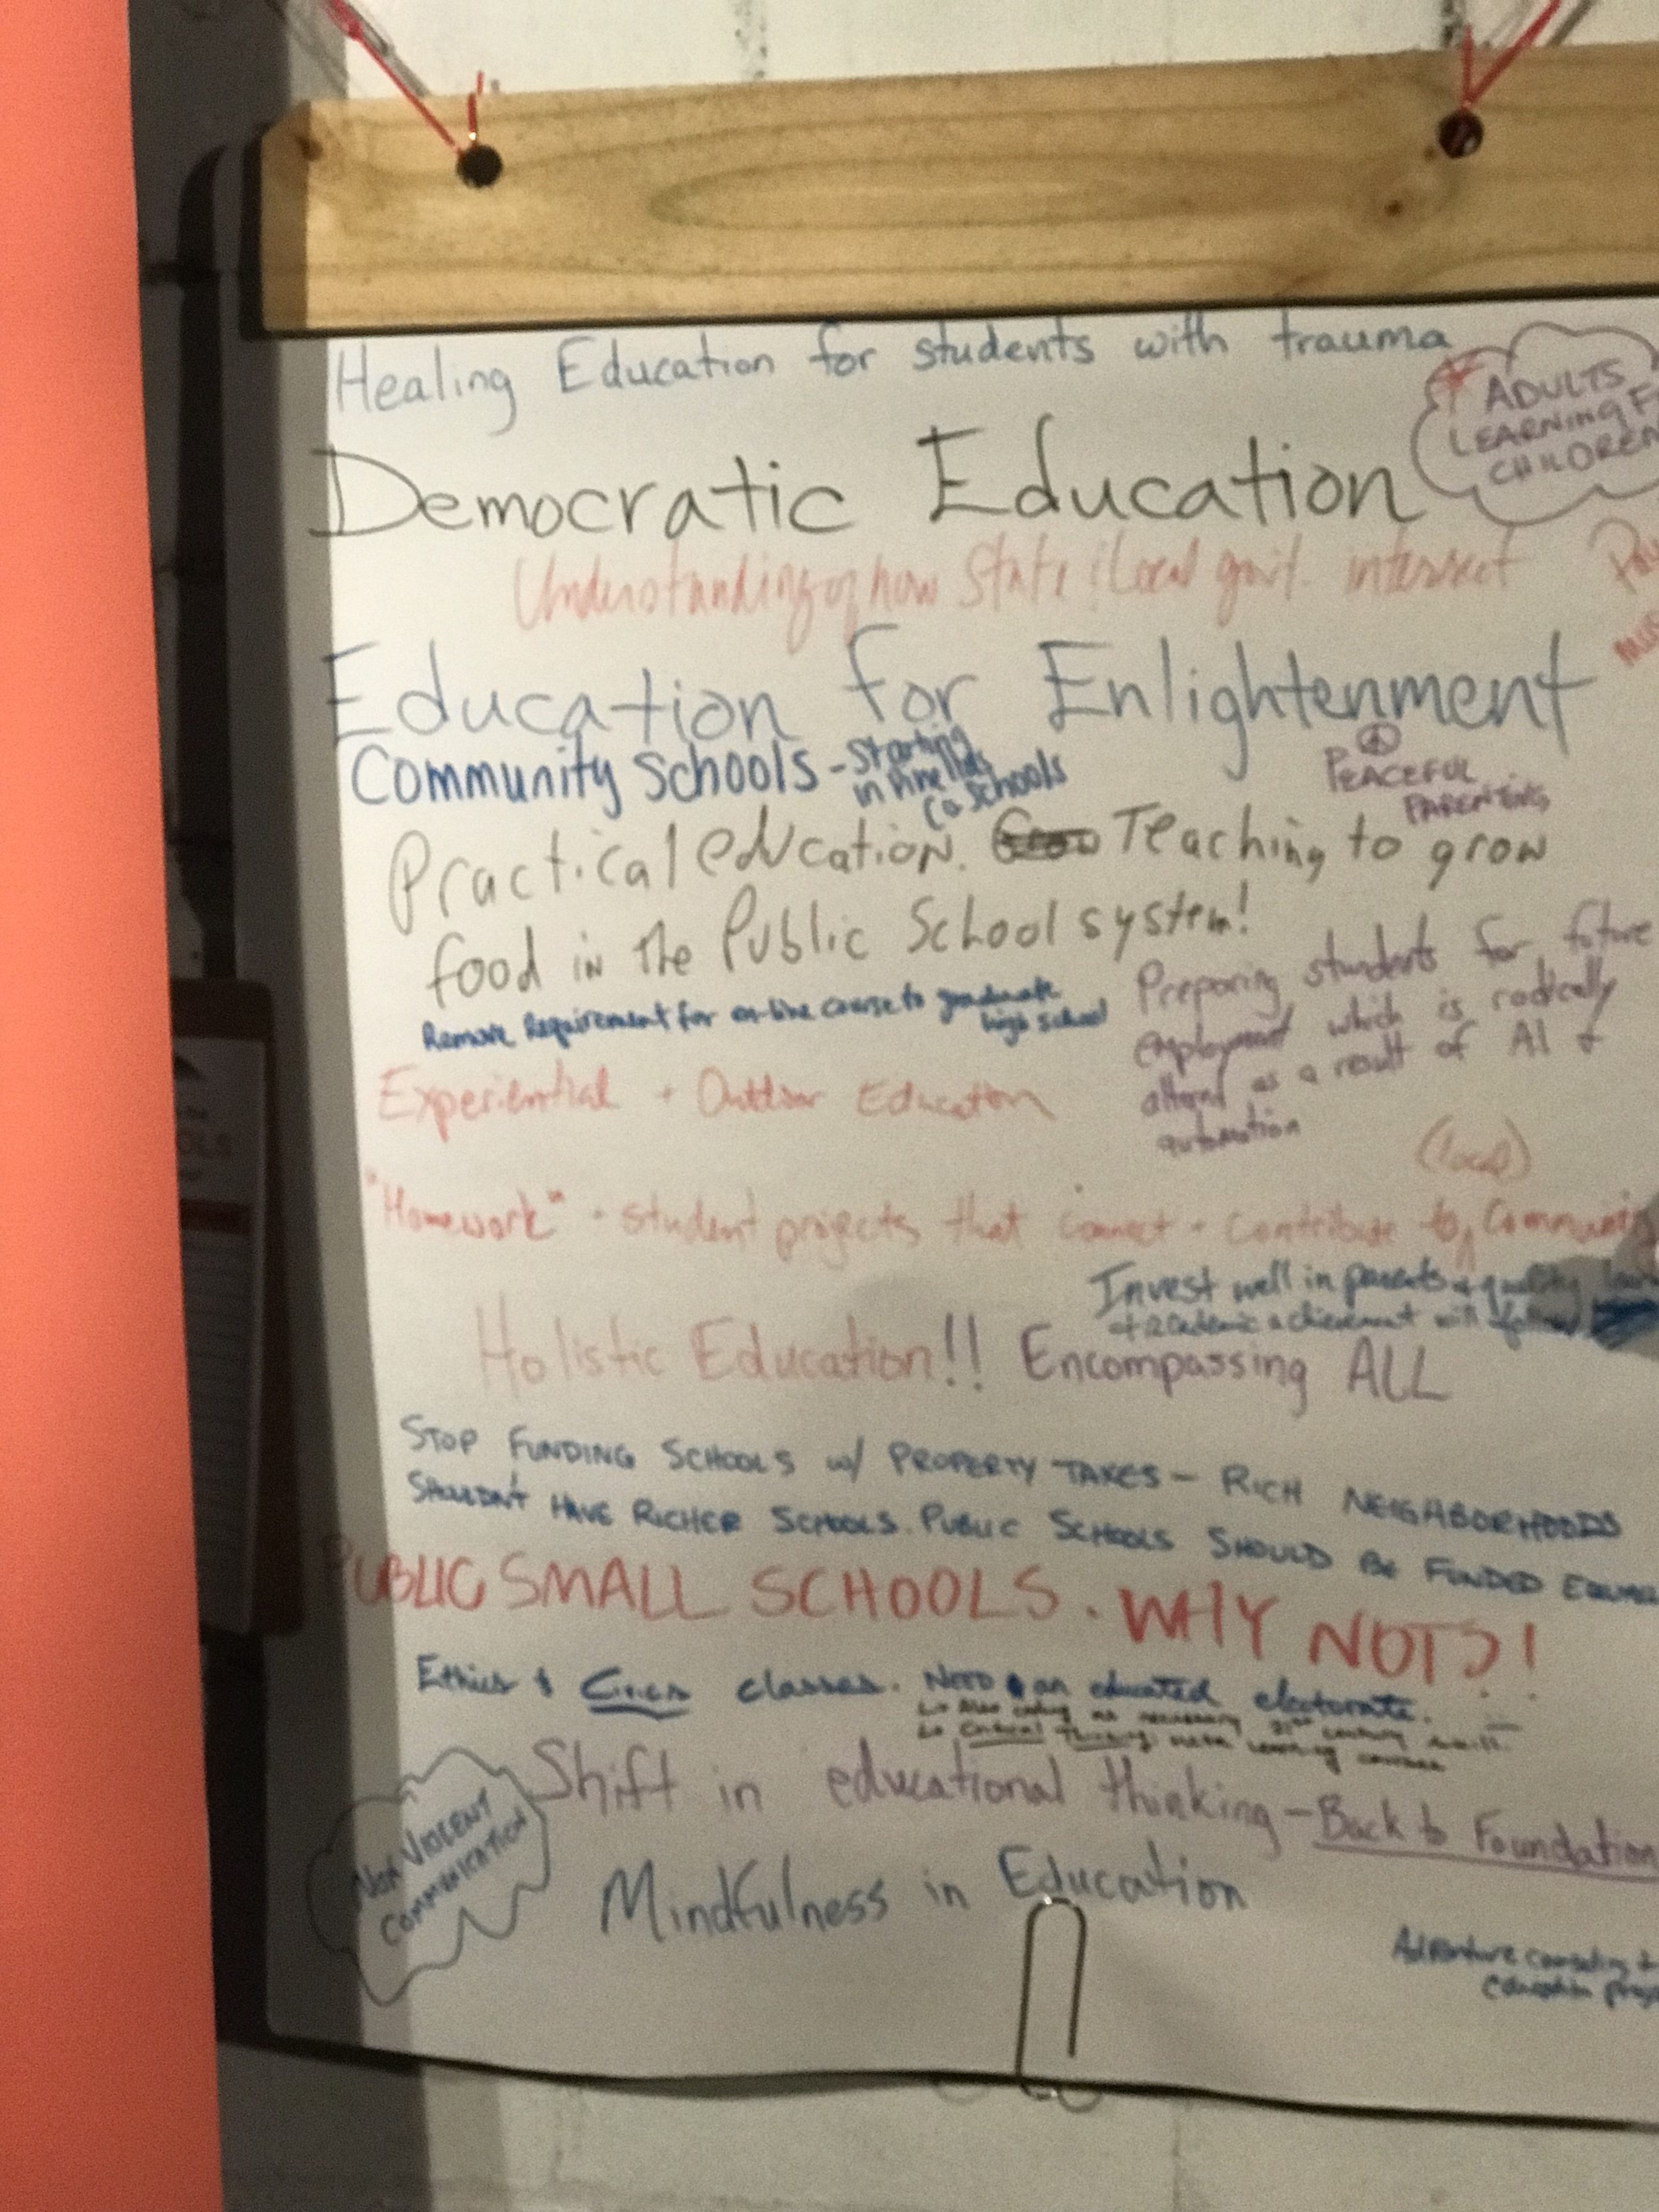 Healing Education for students with trauma
ADULTS
LEARNING
CHILDREN
Democratic Education
Understanding of how State & Local gov't. intersect
Education for Enlightenment
Community Schools - Starting
in Pinellas
Co Schools
PEACEFUL
PARENTING
Practical education. Teaching to grow
food in the Public School system!
Remove Requirement for on-line course to graduate
high school
Preparing stundents for future
employment which is radically
altered as a result of AI &
automation
Experiential + Outdoor Education
(local)
"Homework" - student projects that connect + contribute to Community
Invest well in parents + quality
of academic achievement will follow
Holistic Education!! Encompassing ALL
STOP FUNDING SCHOOLS w/ PROPERTY TAXES - RICH NEIGHBORHOODS
SHOULDN'T HAVE RICHER SCHOOLS. PUBLIC SCHOOLS SHOULD BE FUNDED
PUBLIC SMALL SCHOOLS. WHY NOT?!
Ethics & Civics classes. NEED an educated electorate.
↳ Also coding as necessary 21st century skill.
↳ Critical Thinking; learning courses
Shift in educational thinking - Back to Foundation
NON VIOLENT
COMMUNICATION
Mindfulness in Education
Adventure counseling +
education